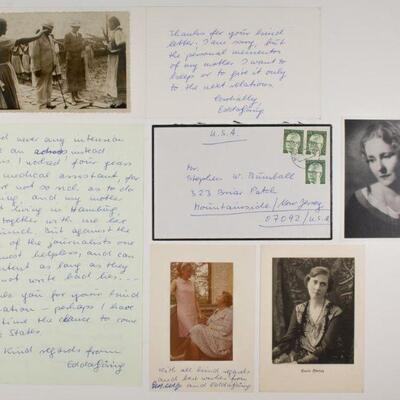 Thanks for your kind
letter. I am sorry, but
the personal mementos
of my mother I want to
keep or to give it only
to the next relations
Cordially
Edda Göring
never any intension
an instead
I worked four years
medical assistant, for
not so rich as to do
and my mother
living in Hamburg
together with me her
But against the
of the journalists one
most helpless, and can
as long as they
not write bad lies...
you for your kind
perhaps I have
time the chance to come
States.
Kind regards from
Edda Göring
U.S.A.
Mr.
Stephen W. Bumball
323 Briar Patch
Mountainside / New Jersey
07092 / U.S.A
With all kind regards
and best wishes from
and Edda Göring